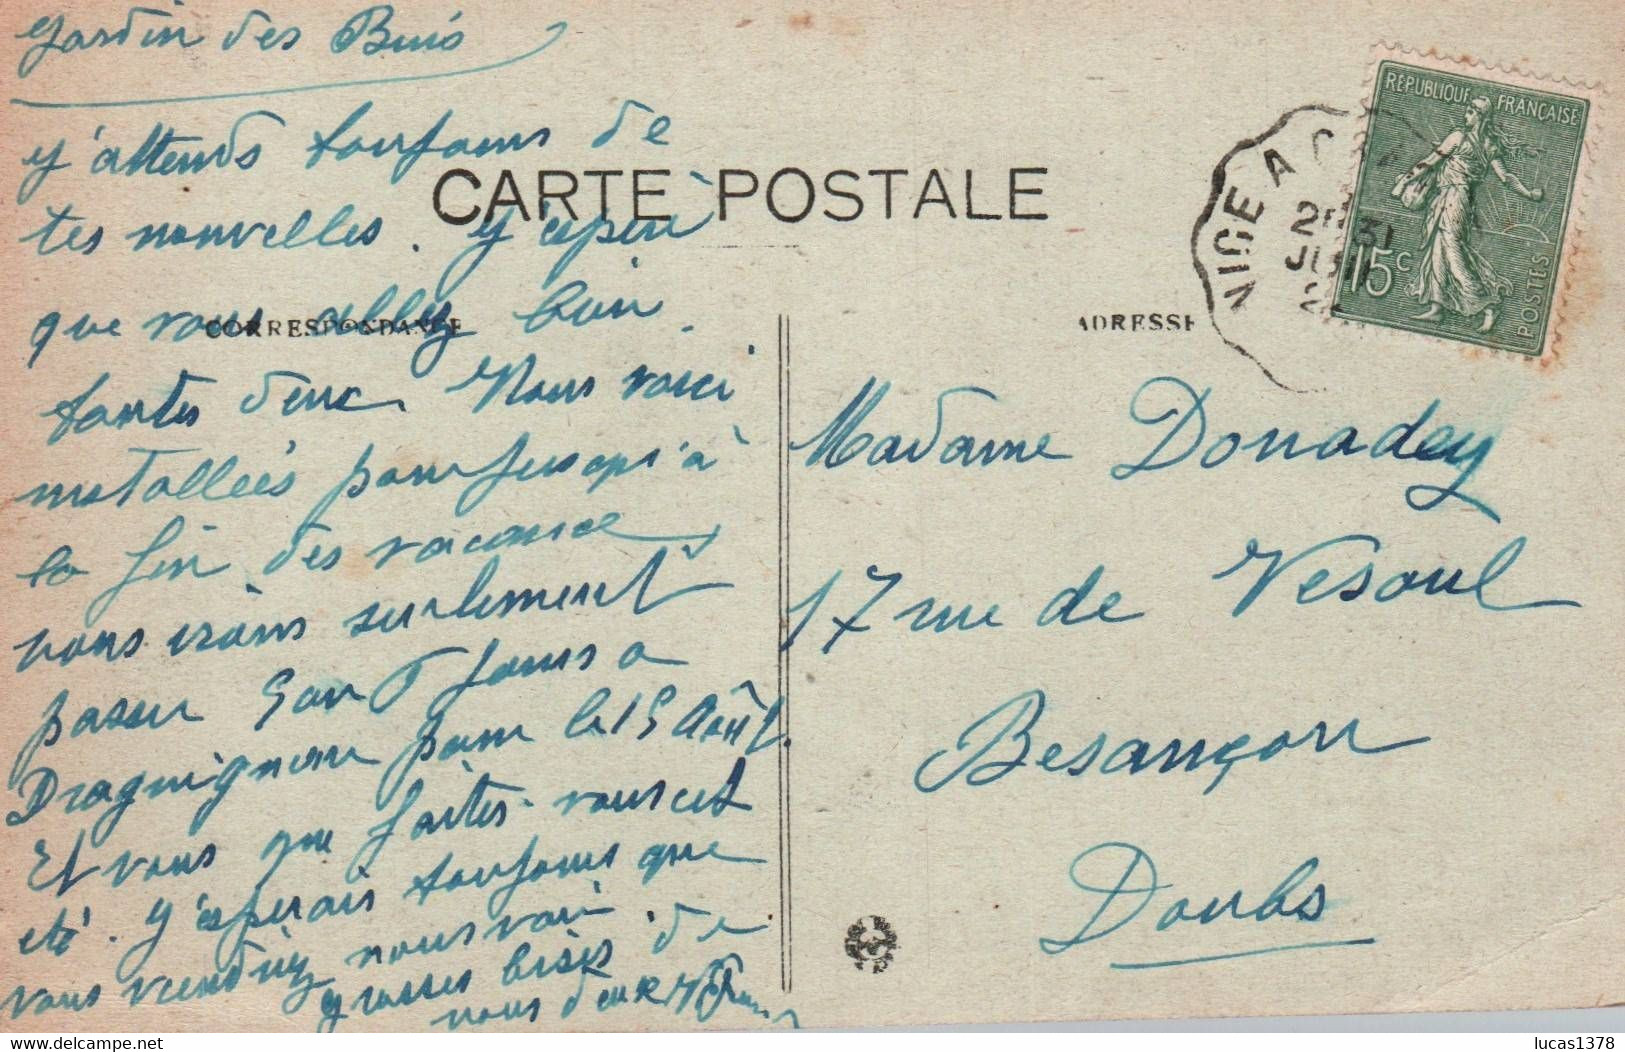 Jardin des Buis
J'attends toujours de
tes nouvelles. J'espère
que vous allez bien
toutes deux. Nous voici
installées pour jusqu'à
la fin des vacances
nous irons seulement
passer jours a
Draguignan pour le 15 Août.
Et vous que faites-vous cet
été. J'espérais toujours que
vous viendriez nous voir.
grosses bises de
nous deux
CARTE POSTALE
CORRESPONDANCE
ADRESSE
REPUBLIQUE FRANÇAISE
15c
POSTES
NICE A
Madame Donadey
17 rue de Vesoul
Besançon
Doubs
delcampe.net
lucas1378